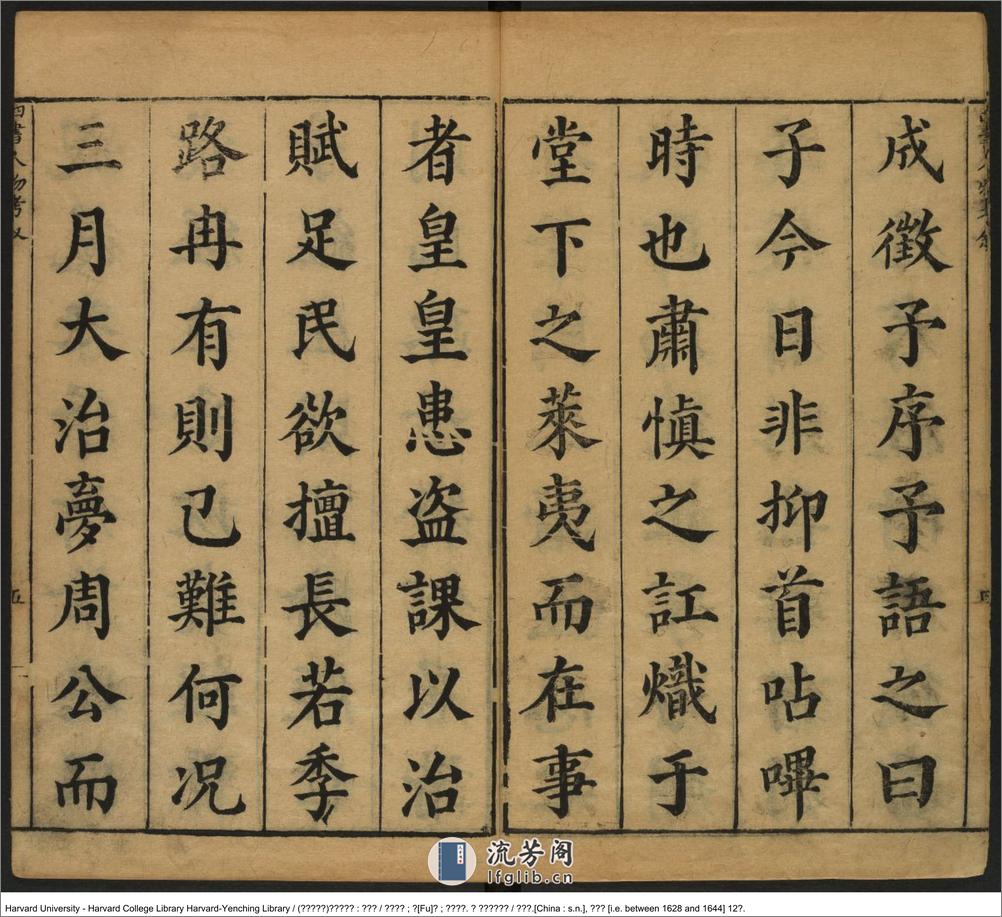 成徵予序予語之曰
子今日非抑首呫嗶
時也肅愼之訌熾于
堂下之萊夷而在事
者皇皇患盜課以治
賦足民欲擅長若季
路冉有則已難何况
三月大治夢周公而
五
流芳阁
lfglib.cn
Harvard University - Harvard College Library Harvard-Yenching Library / (?????)????? : ??? / ???? ; ?[Fu]? ; ????. ? ?????? / ???.[China : s.n.], ??? [i.e. between 1628 and 1644] 12?.